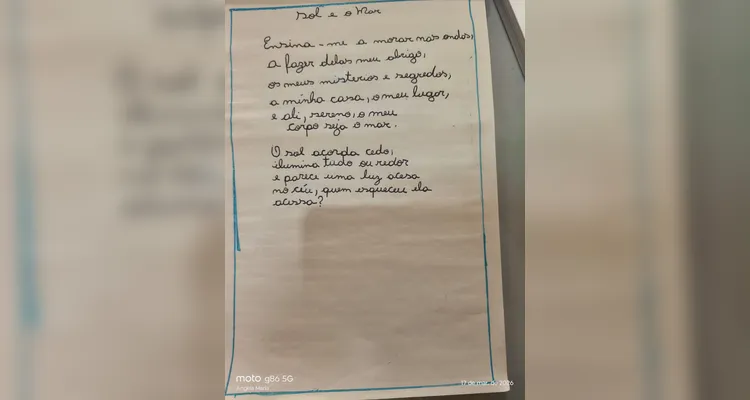 Sol e o Mar
Ensina-me a morar nas ondas,
a fazer delas meu abrigo,
os meus misterios e segredos,
a minha casa, o meu lugar,
e ali, sereno, o meu
corpo seja o mar.
O sol acorda cedo,
ilumina tudo ou redor
e parece uma luz acesa
no céu, quem esqueceu ela
acessa?
moto g86 5G
17 de mar. de 2026